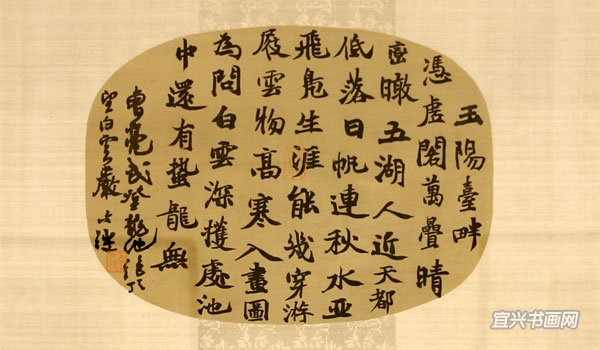 玉陽臺畔
憑虛閣萬疊晴
巒瞰五湖人近天都
低落日帆連秋水亞
飛鳧生涯能幾穿游
屐雲物高寒入畫圖
為問白雲深穫處池
中還有蟄龍無
曹亮武登龍池絕頂
望白雲巖 士继
宜兴书画网